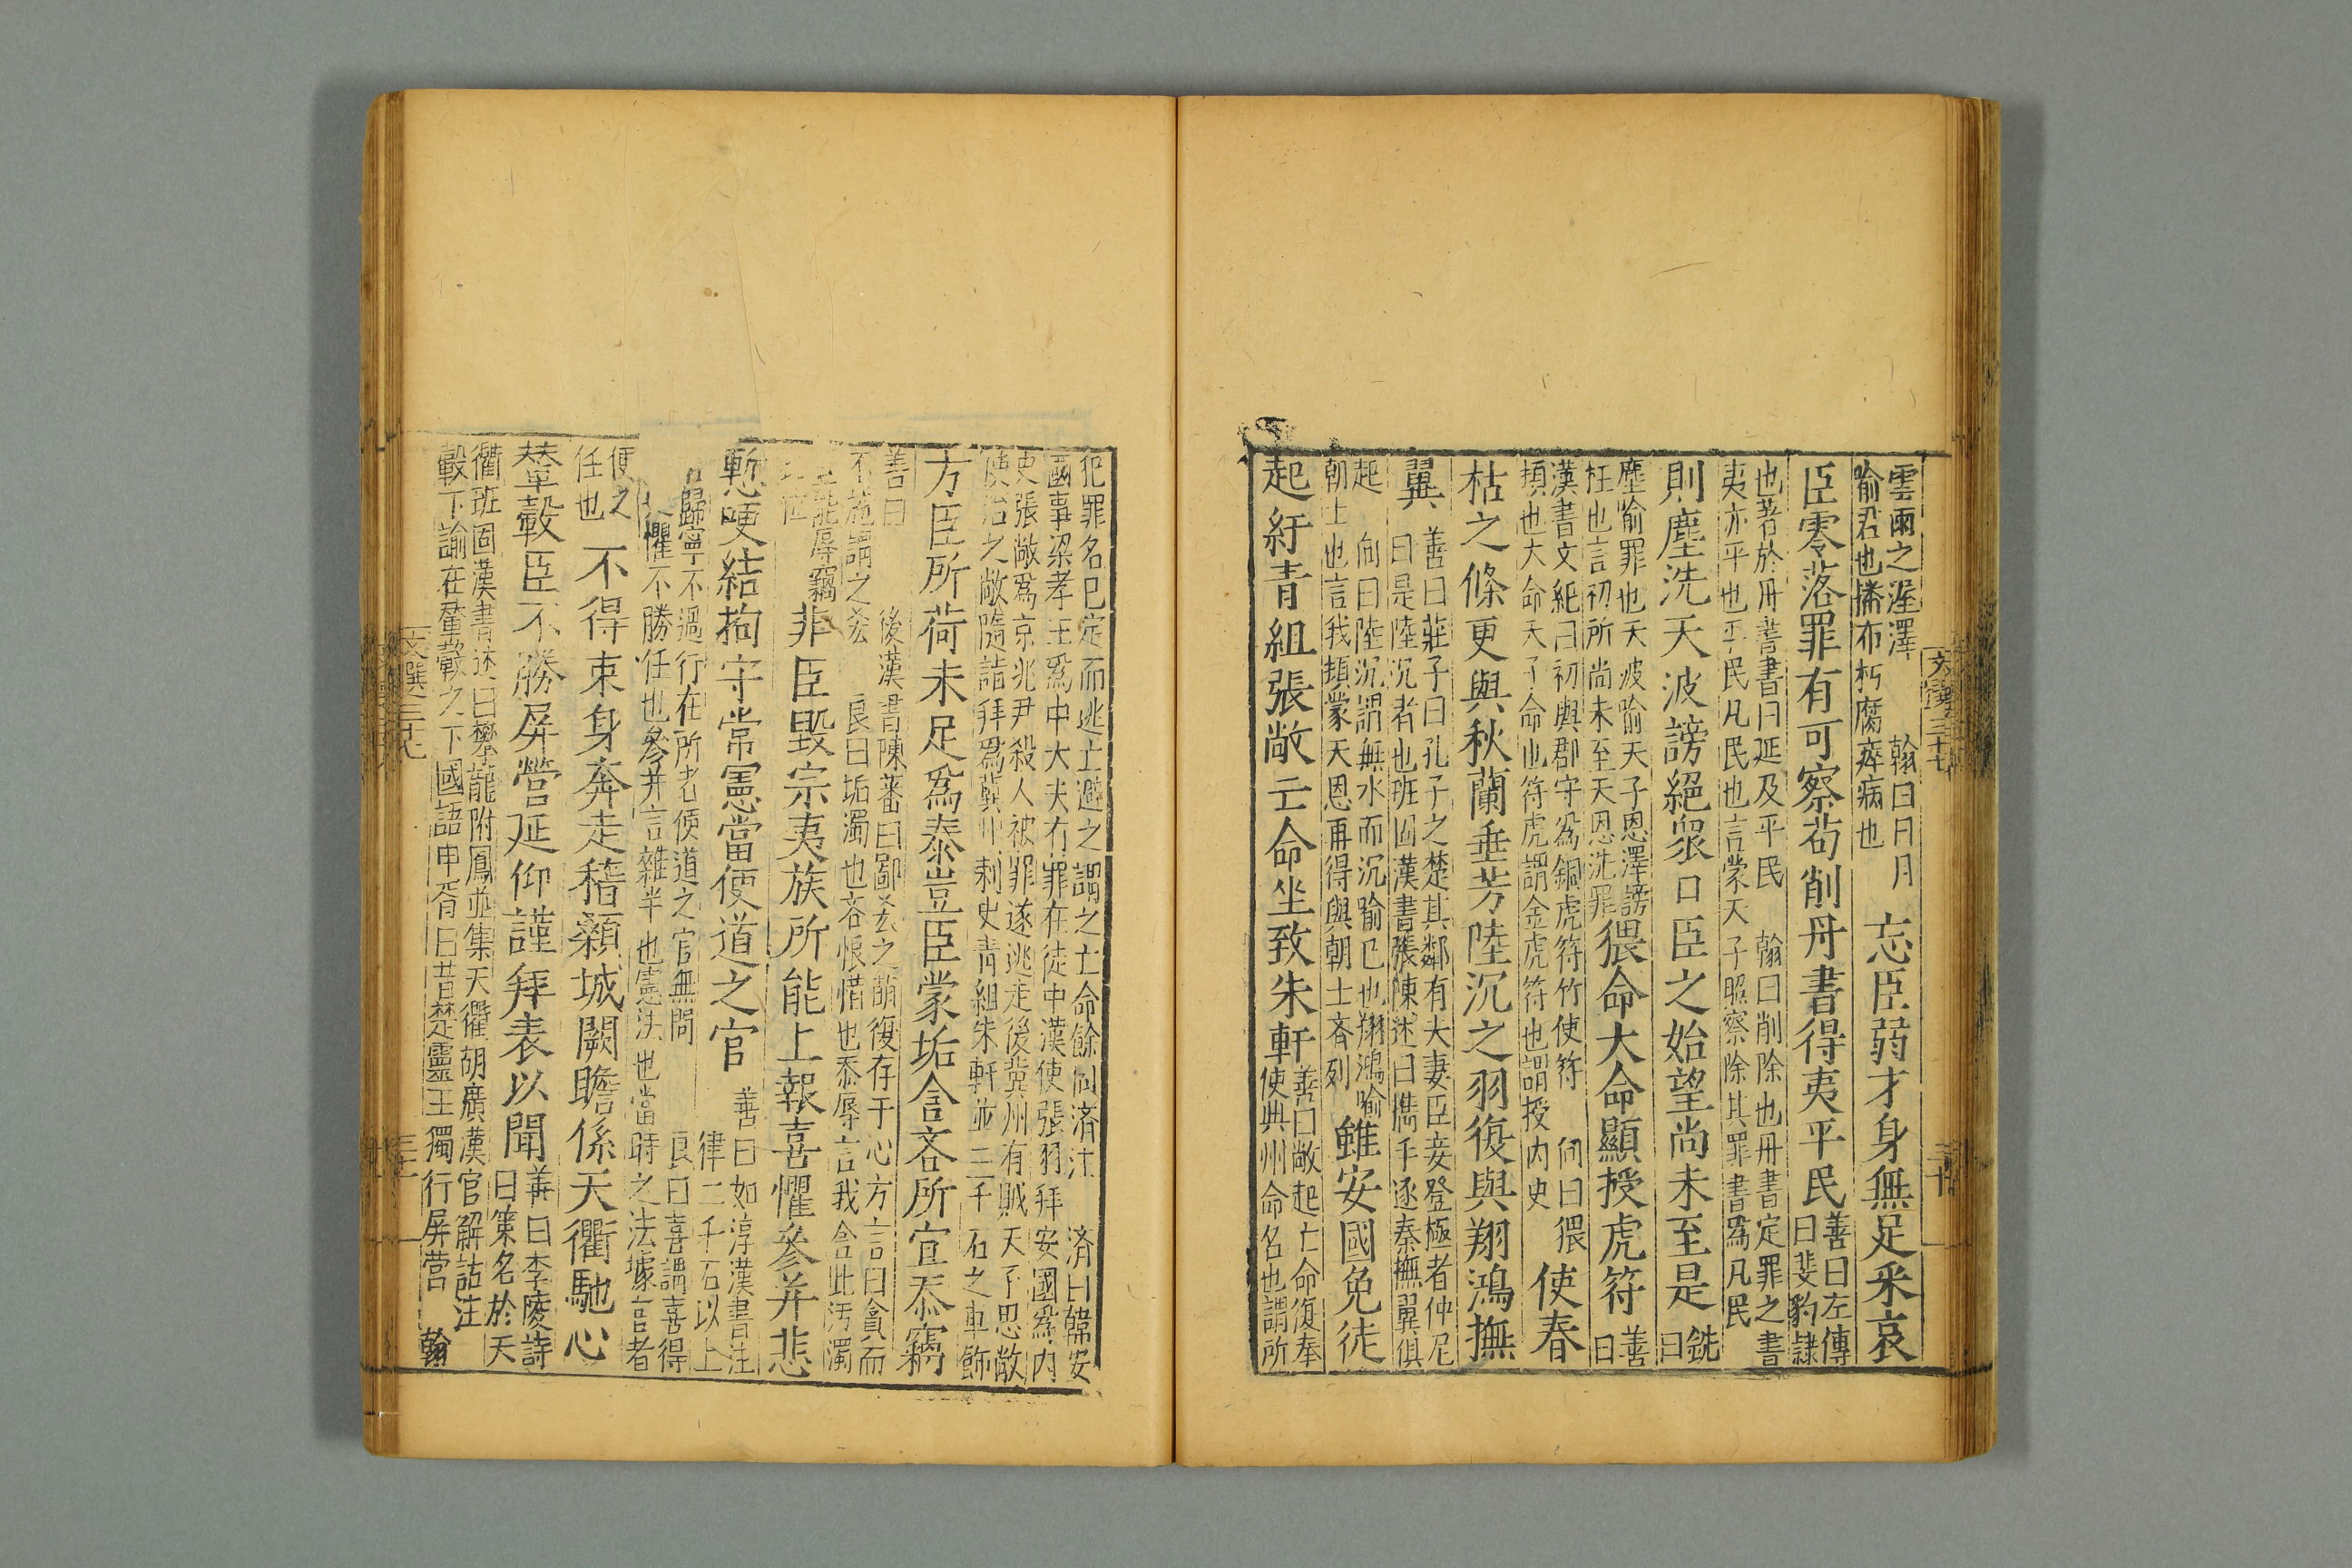 文選三十七
三十
雲雨之渥澤 翰曰日月
喻君也播布朽腐瘁病也
忘臣弱才身無足采哀
臣零落罪有可察苟削丹書得夷平民
善曰左傳
曰斐豹隷
也著於丹書書曰延及平民 翰曰削除也丹書定罪之書
夷亦平也平民凡民也言蒙天子照察除其罪書爲凡民
則塵洗天波謗絕衆口臣之始望尚未至是
銑
曰
塵喻罪也天波喻天子恩澤謗
枉也言初所尚未至天恩洗罪
猥命大命顯授虎符
善
曰
漢書文紀曰初與郡守爲銅虎符竹使符 向曰猥
頓也大命天子命也符虎謂金虎符也謂授内史
使春
枯之條更與秋蘭垂芳陸沉之羽復與翔鴻撫
翼
善曰莊子曰孔子之楚其鄰有夫妻臣妾登極者仲尼
曰是陸沉者也班固漢書張陳述曰攜手逐秦撫翼俱
起 向曰陸沉謂無水而沉喻已也翔鴻喻
朝士也言我頓蒙天恩再得與朝士齊列
雖安國免徒
起紆青組張敞亡命坐致朱軒
善曰敞起亡命復奉
使典州命名也謂所
犯罪名已定而逃亡避之謂之亡命餘同濟注 濟曰韓安
國事梁孝王爲中大夫有罪在徒中漢使張羽拜安國爲内
史張敞爲京兆尹殺人被罪遂逃走後冀州有賊天子思敞
使治之敞隨詣拜爲冀州刺史青組朱軒並二千石之車飾
方臣所荷未足爲泰豈臣蒙垢含吝所宜忝竊
善曰 後漢書陳蕃曰鄙吝之萌復存于心方言曰貪而
不施謂之吝 良曰垢濁也吝恨惜也忝辱言我含此污濁
能辱竊
非臣毀宗夷族所能上報喜懼參并悲
慙哽結拘守常憲當便道之官
善曰如淳漢書注
律二千石以上
歸寧不過行在所者便道之官無問 良曰喜謂喜得
懼不勝任也參并言雜半也憲法也當時之法據官者
便之
任也
不得束身奔走稽顙城闕瞻係天衢馳心
輦轂臣不勝屏營延仰謹拜表以聞
善曰李陵詩
曰策名於天
衢班固漢書述曰攀龍附鳳並集天衢胡廣漢官解詁注
轂下諭在輦轂之下國語申胥曰昔楚靈王獨行屏營 翰
文選三十七